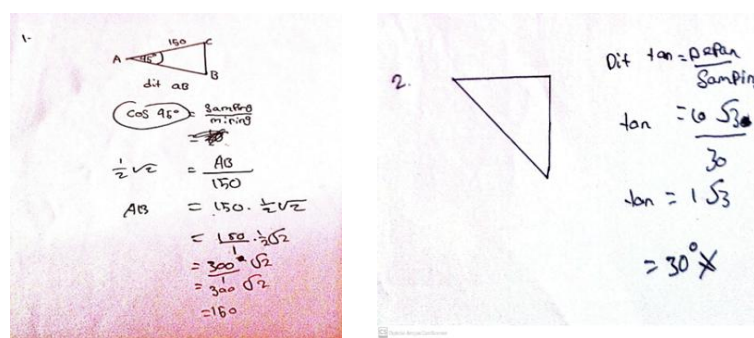 1.
150
A
45°
C
B
dit AB
cos 45° = samping
miring
=
½√2 = AB
150
AB = 150 . ½√2
= 150 . ½√2
1
= 300 √2
1
= 300 √2
=150
2.
Dit tan = Depan
Samping
tan =
√3
30
tan = 1√3
= 30° X